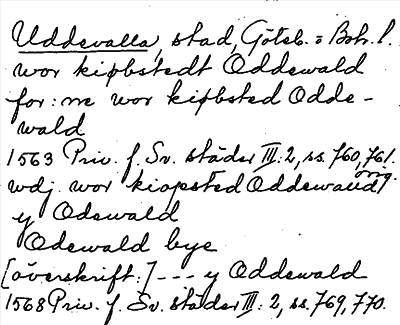 Uddevalla, stad, Göteb. o Boh. l.
wor kipbstedt Oddewald
for:ne wor kipbsted Odde-
wald
1563 Priv. f. Sv. städer III: 2, ss. 760, 761.
wdj wor kiopsted Oddewand, orig.
y Odewald
Odewald bye
[överskrift:] --- y Oddewald
1568 Priv. f. Sv. städer III: 2, ss. 769, 770.